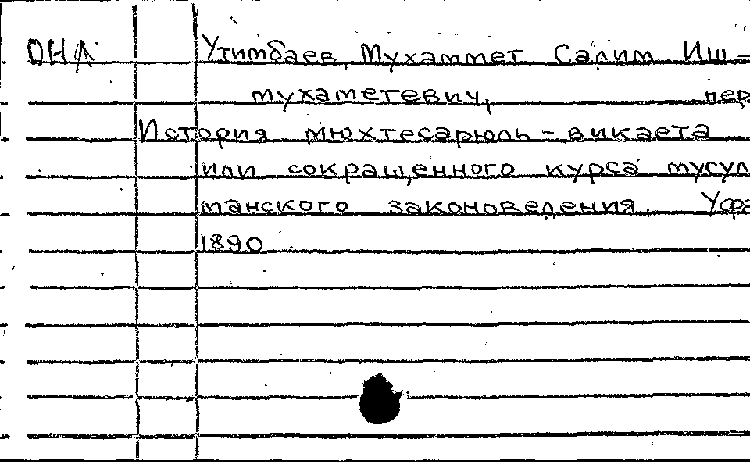 ОНА Утимбаев, Мухаммет Салим Иш-
мухаметевич, пер
История мюхтесарюль-викаета
или сокращенного курса мусул
манского законоведения. Уфа
1890